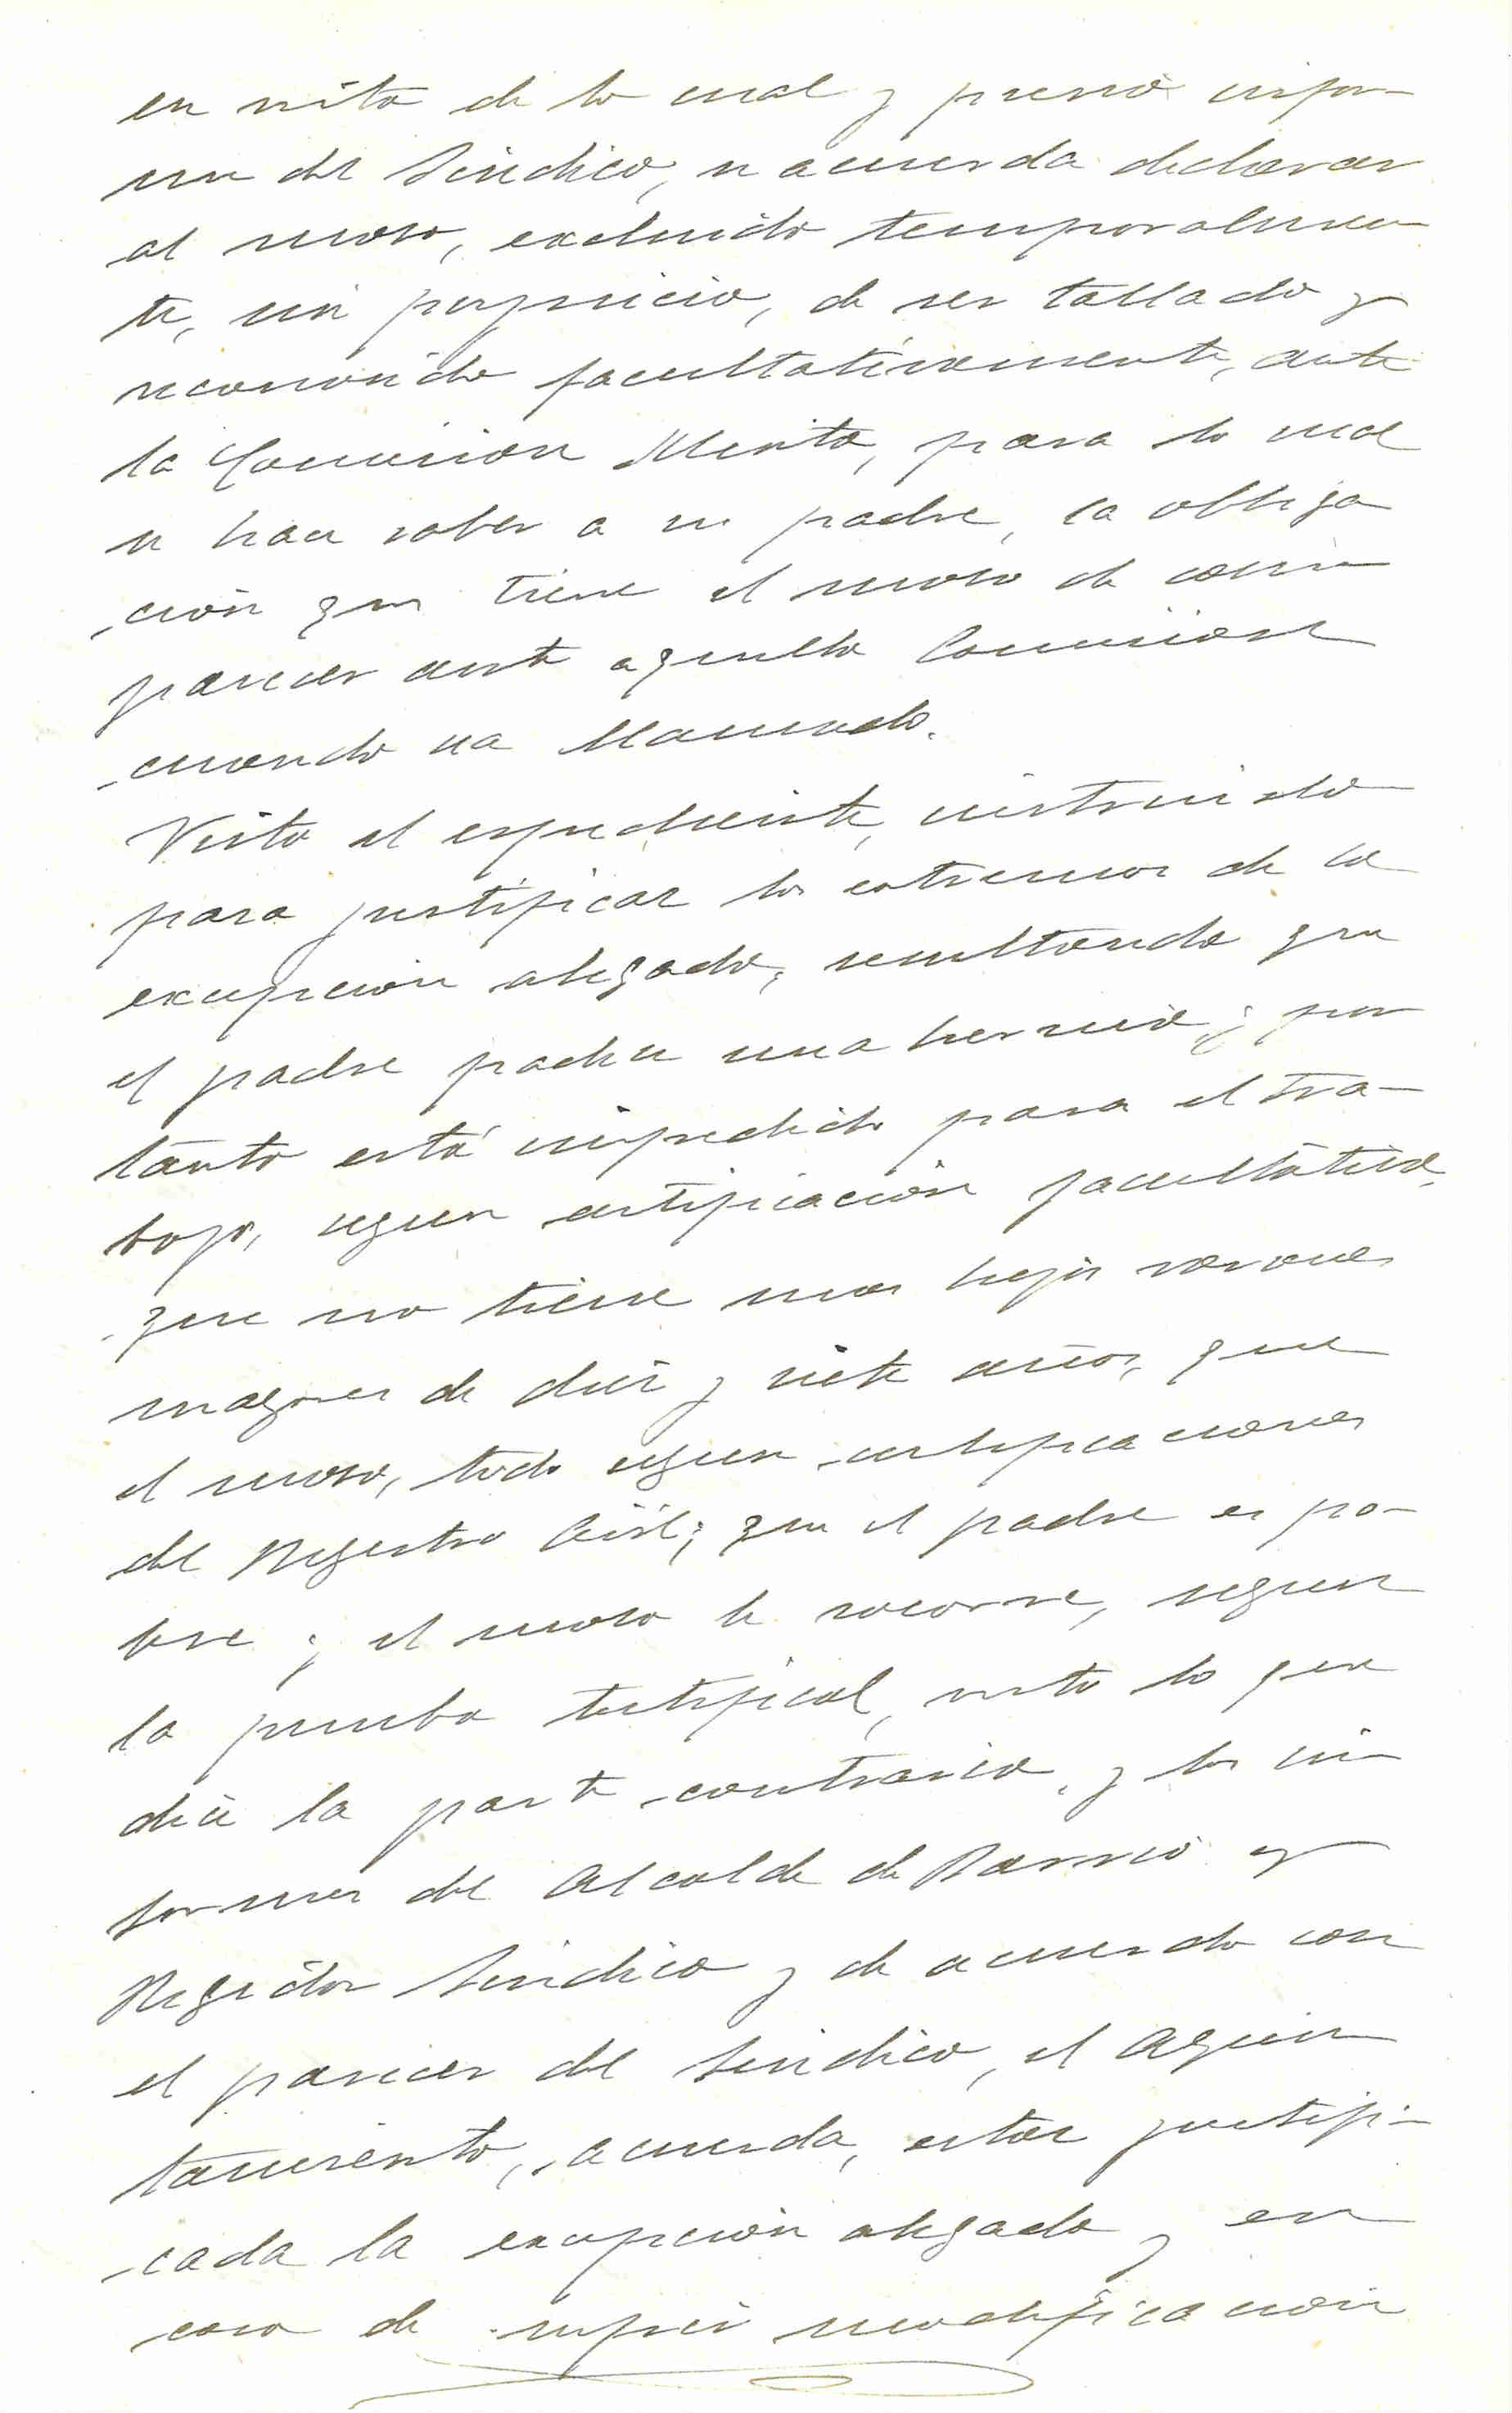 en vista de lo cual y previo infor-
me del Sindico, se acuerda declarar
al mozo, excluido temporalmen-
te, sin perjuicio, de ser tallado y
reconocido facultativamente, ante
la Comision Mixta, para lo cual
se hace saber a su padre, la obliga
ción que tiene el mozo de com-
parecer ante aquella Comision
cuando sea llamado.
Visto el espediente, instruido
para justificar los estremos de la
excepcion alegada; resultando que
el padre padece una hernia y por
tanto está impedido para el tra-
bajo, segun certificación facultativa,
que no tiene mas hijos varones
mayores de diez y siete años, que
el mozo, todo segun certificaciones
del Registro Civil; que el padre es po-
bre y el mozo le socorre, segun
la prueba testifical, visto lo que
dice la parte contraria, y los in-
formes del Alcalde de Barrio y
Regidor Sindico y de acuerdo con
el parecer del Sindico, el Ayun-
tamiento, acuerda, estar justifi-
cada la excepción alegada y en
caso de sufrir modificacion